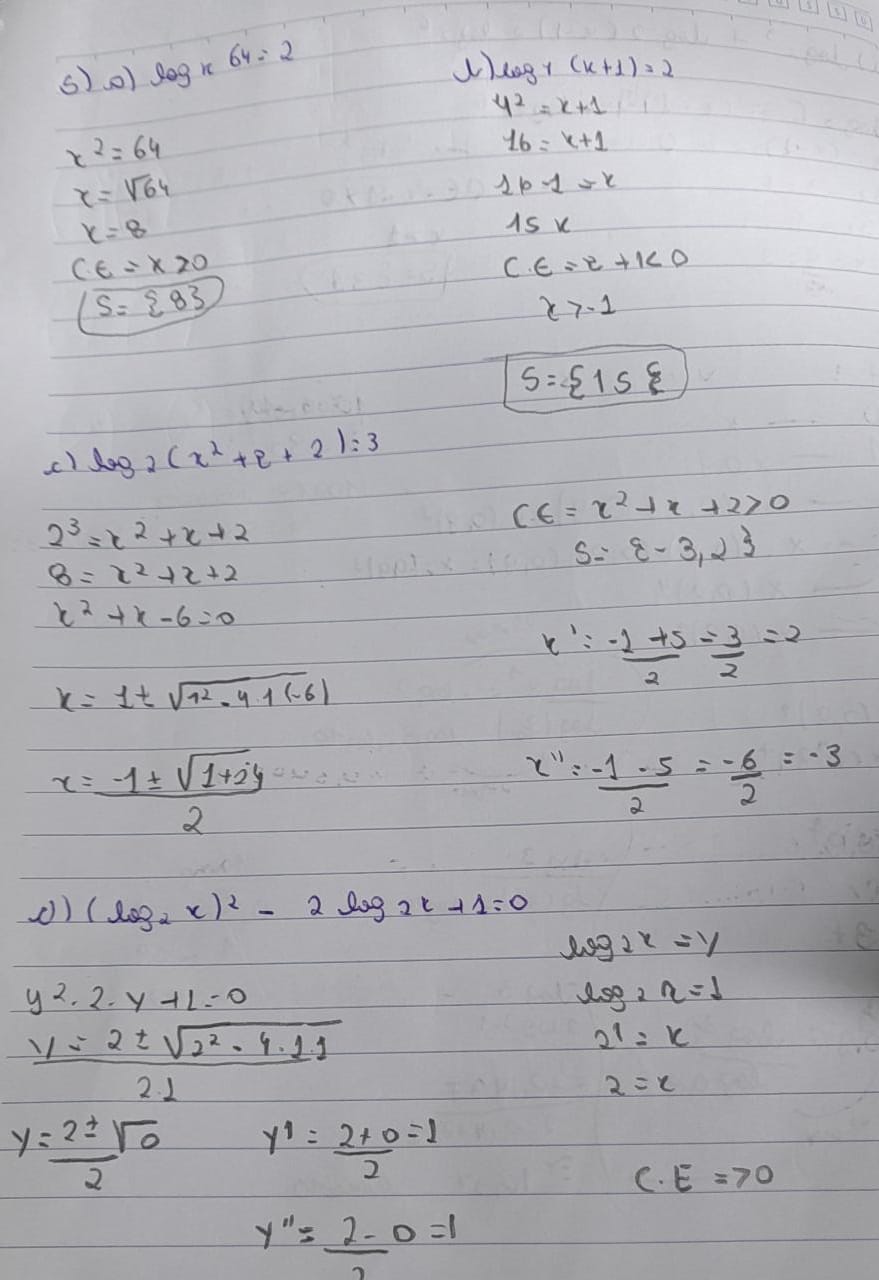 5) a) log x 64 = 2
x² = 64
x = √64
x = 8
C.E = x > 0
S = {8}
b) log 4 (x+1) = 2
4² = x+1
16 = x+1
16-1 = x
15 x
C.E = x + 1 < 0
x > -1
S = {15}
c) log 2 (x² + x + 2) = 3
2³ = x² + x + 2
8 = x² + x + 2
x² + x - 6 = 0
x = 1 ± √1² - 4.1(-6)
x = -1 ± √1+24 / 2
C.E = x² + x + 2 > 0
S = {-3, 2}
x' = -1 + 5 / 2 = 3 / 2 = 2
x'' = -1 - 5 / 2 = -6 / 2 = -3
d) (log₂ x)² - 2 log 2 x + 1 = 0
y² - 2 . y + 1 = 0
y = 2 ± √2² - 4.1.1 / 2.1
y = 2 ± √0 / 2
y' = 2 + 0 / 2 = 1
y'' = 2 - 0 / 2 = 1
log 2 x = y
log 2 x = 1
2¹ = x
2 = x
C.E = > 0